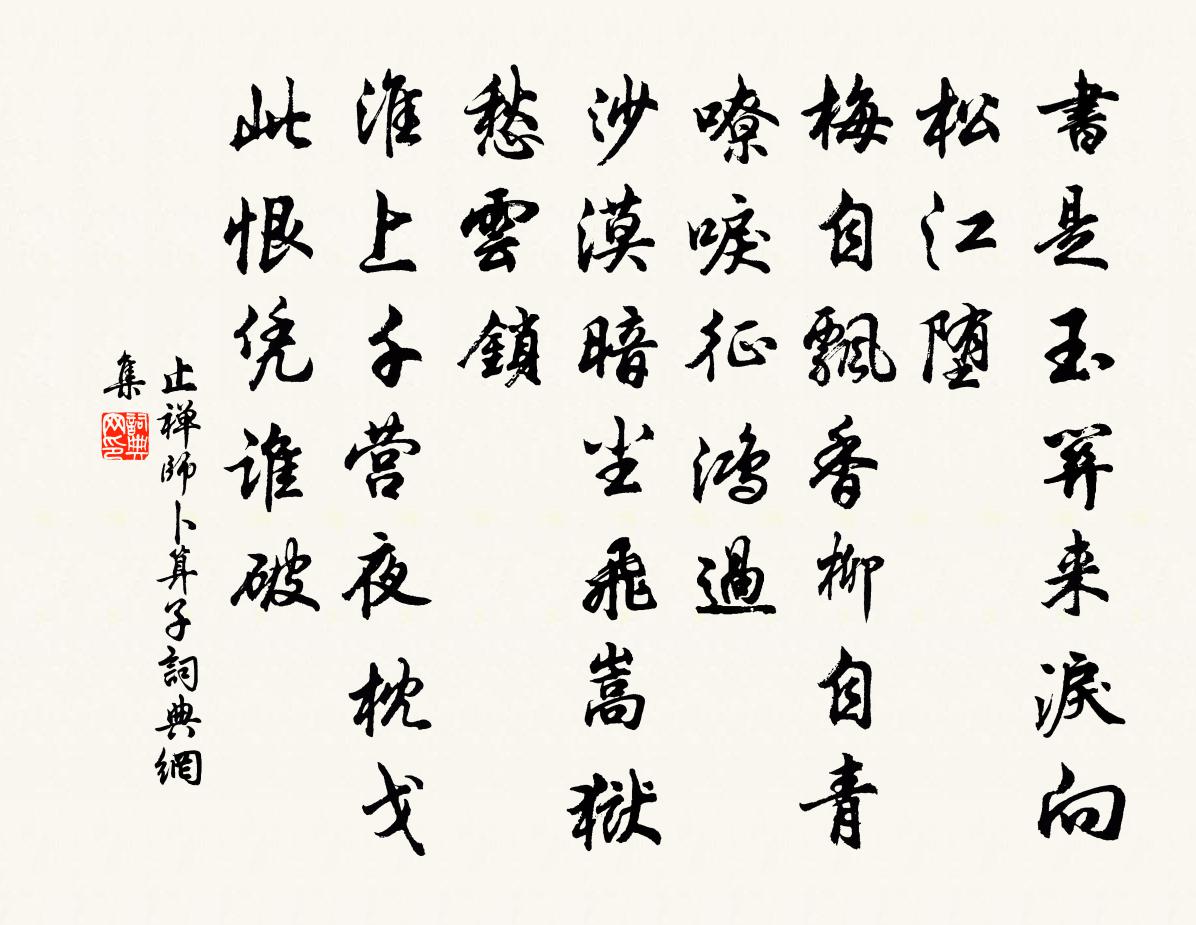 書是玉關来淚向
松江堕
梅自飄香柳自青
嘹唳征鴻過
沙漠暗尘飛嵩嶽
愁雲鎖
淮上千营夜枕戈
此恨凭谁破
止禅师卜算子詞典網
集
詞典网印